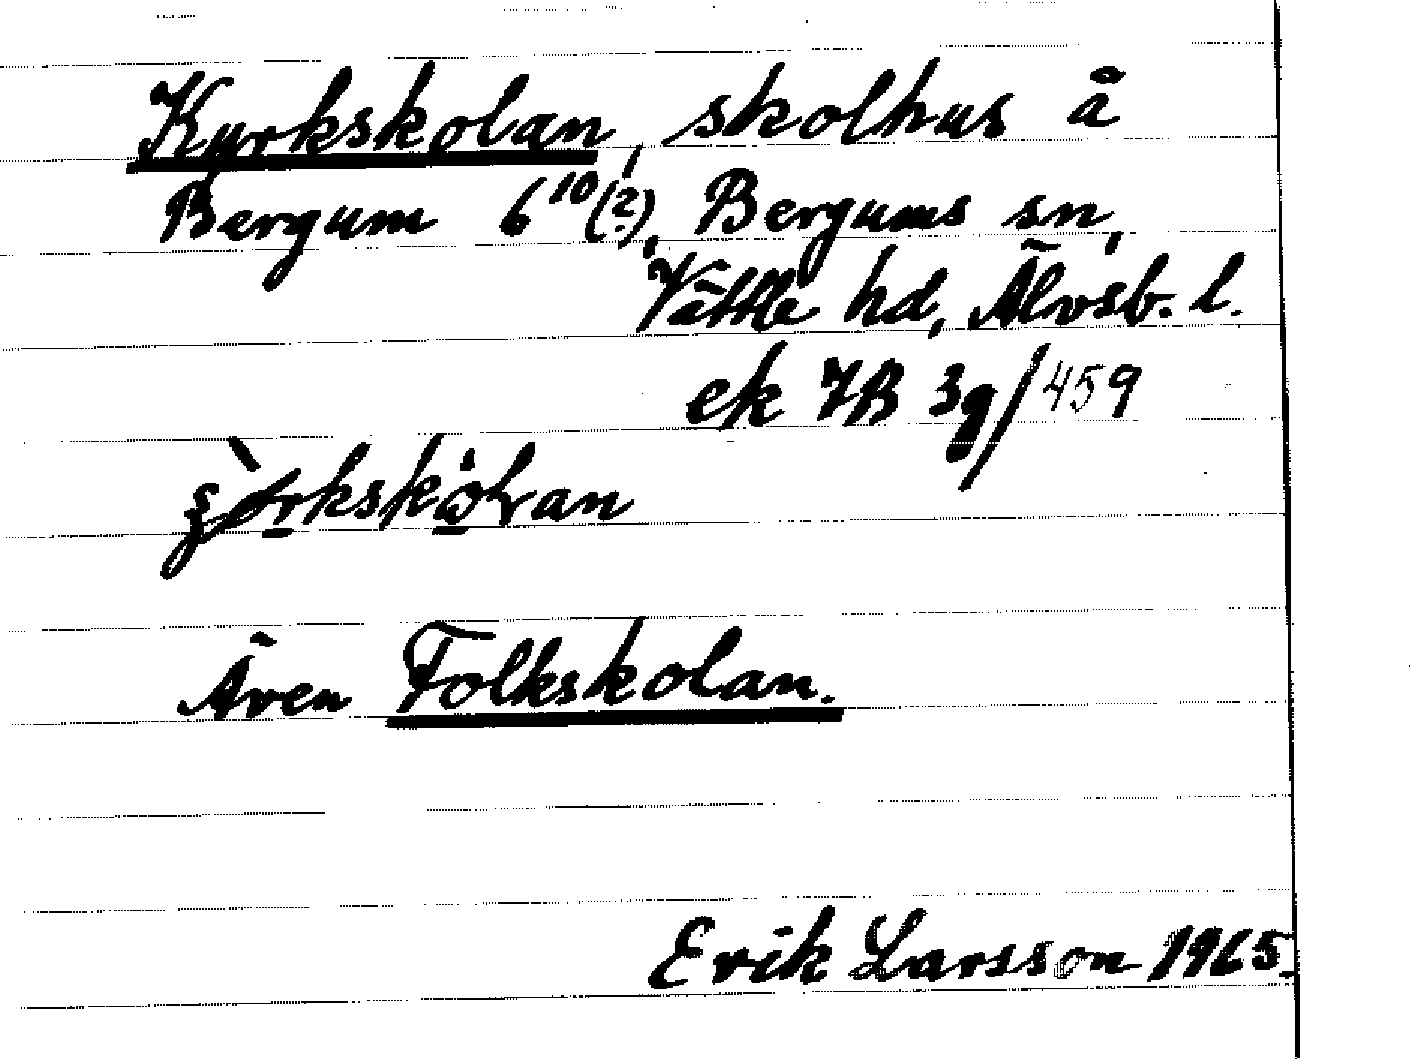 Kyrkskolan, skolhus å
Bergum 6¹⁰(?), Bergums sn,
Vättle hd, Älvsb. l.
ek 7B 3g/459
Även Folkskolan.
Erik Larsson 1965.